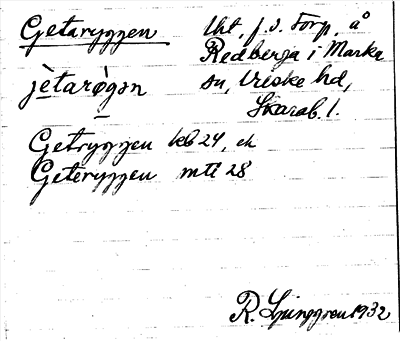 Getaryggen lht, f.d. Torp, å
Redberga i Marka
jètarø̀gən sn, Vriske hd,
Skarab. l.
Getryggen kb 24, ek
Geteryggen mtl 28
R. Ljunggren 1932